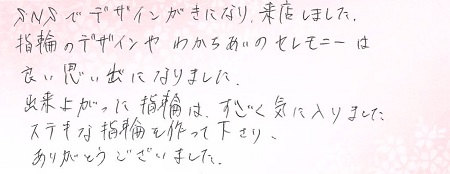 SNSでデザインがきになり、来店しました。
指輪のデザインや わかちあいのセレモニーは
良い思い出になりました。
出来上がった指輪は、すごく気に入りました
ステキな指輪を作って下さり、
ありがとうございました。